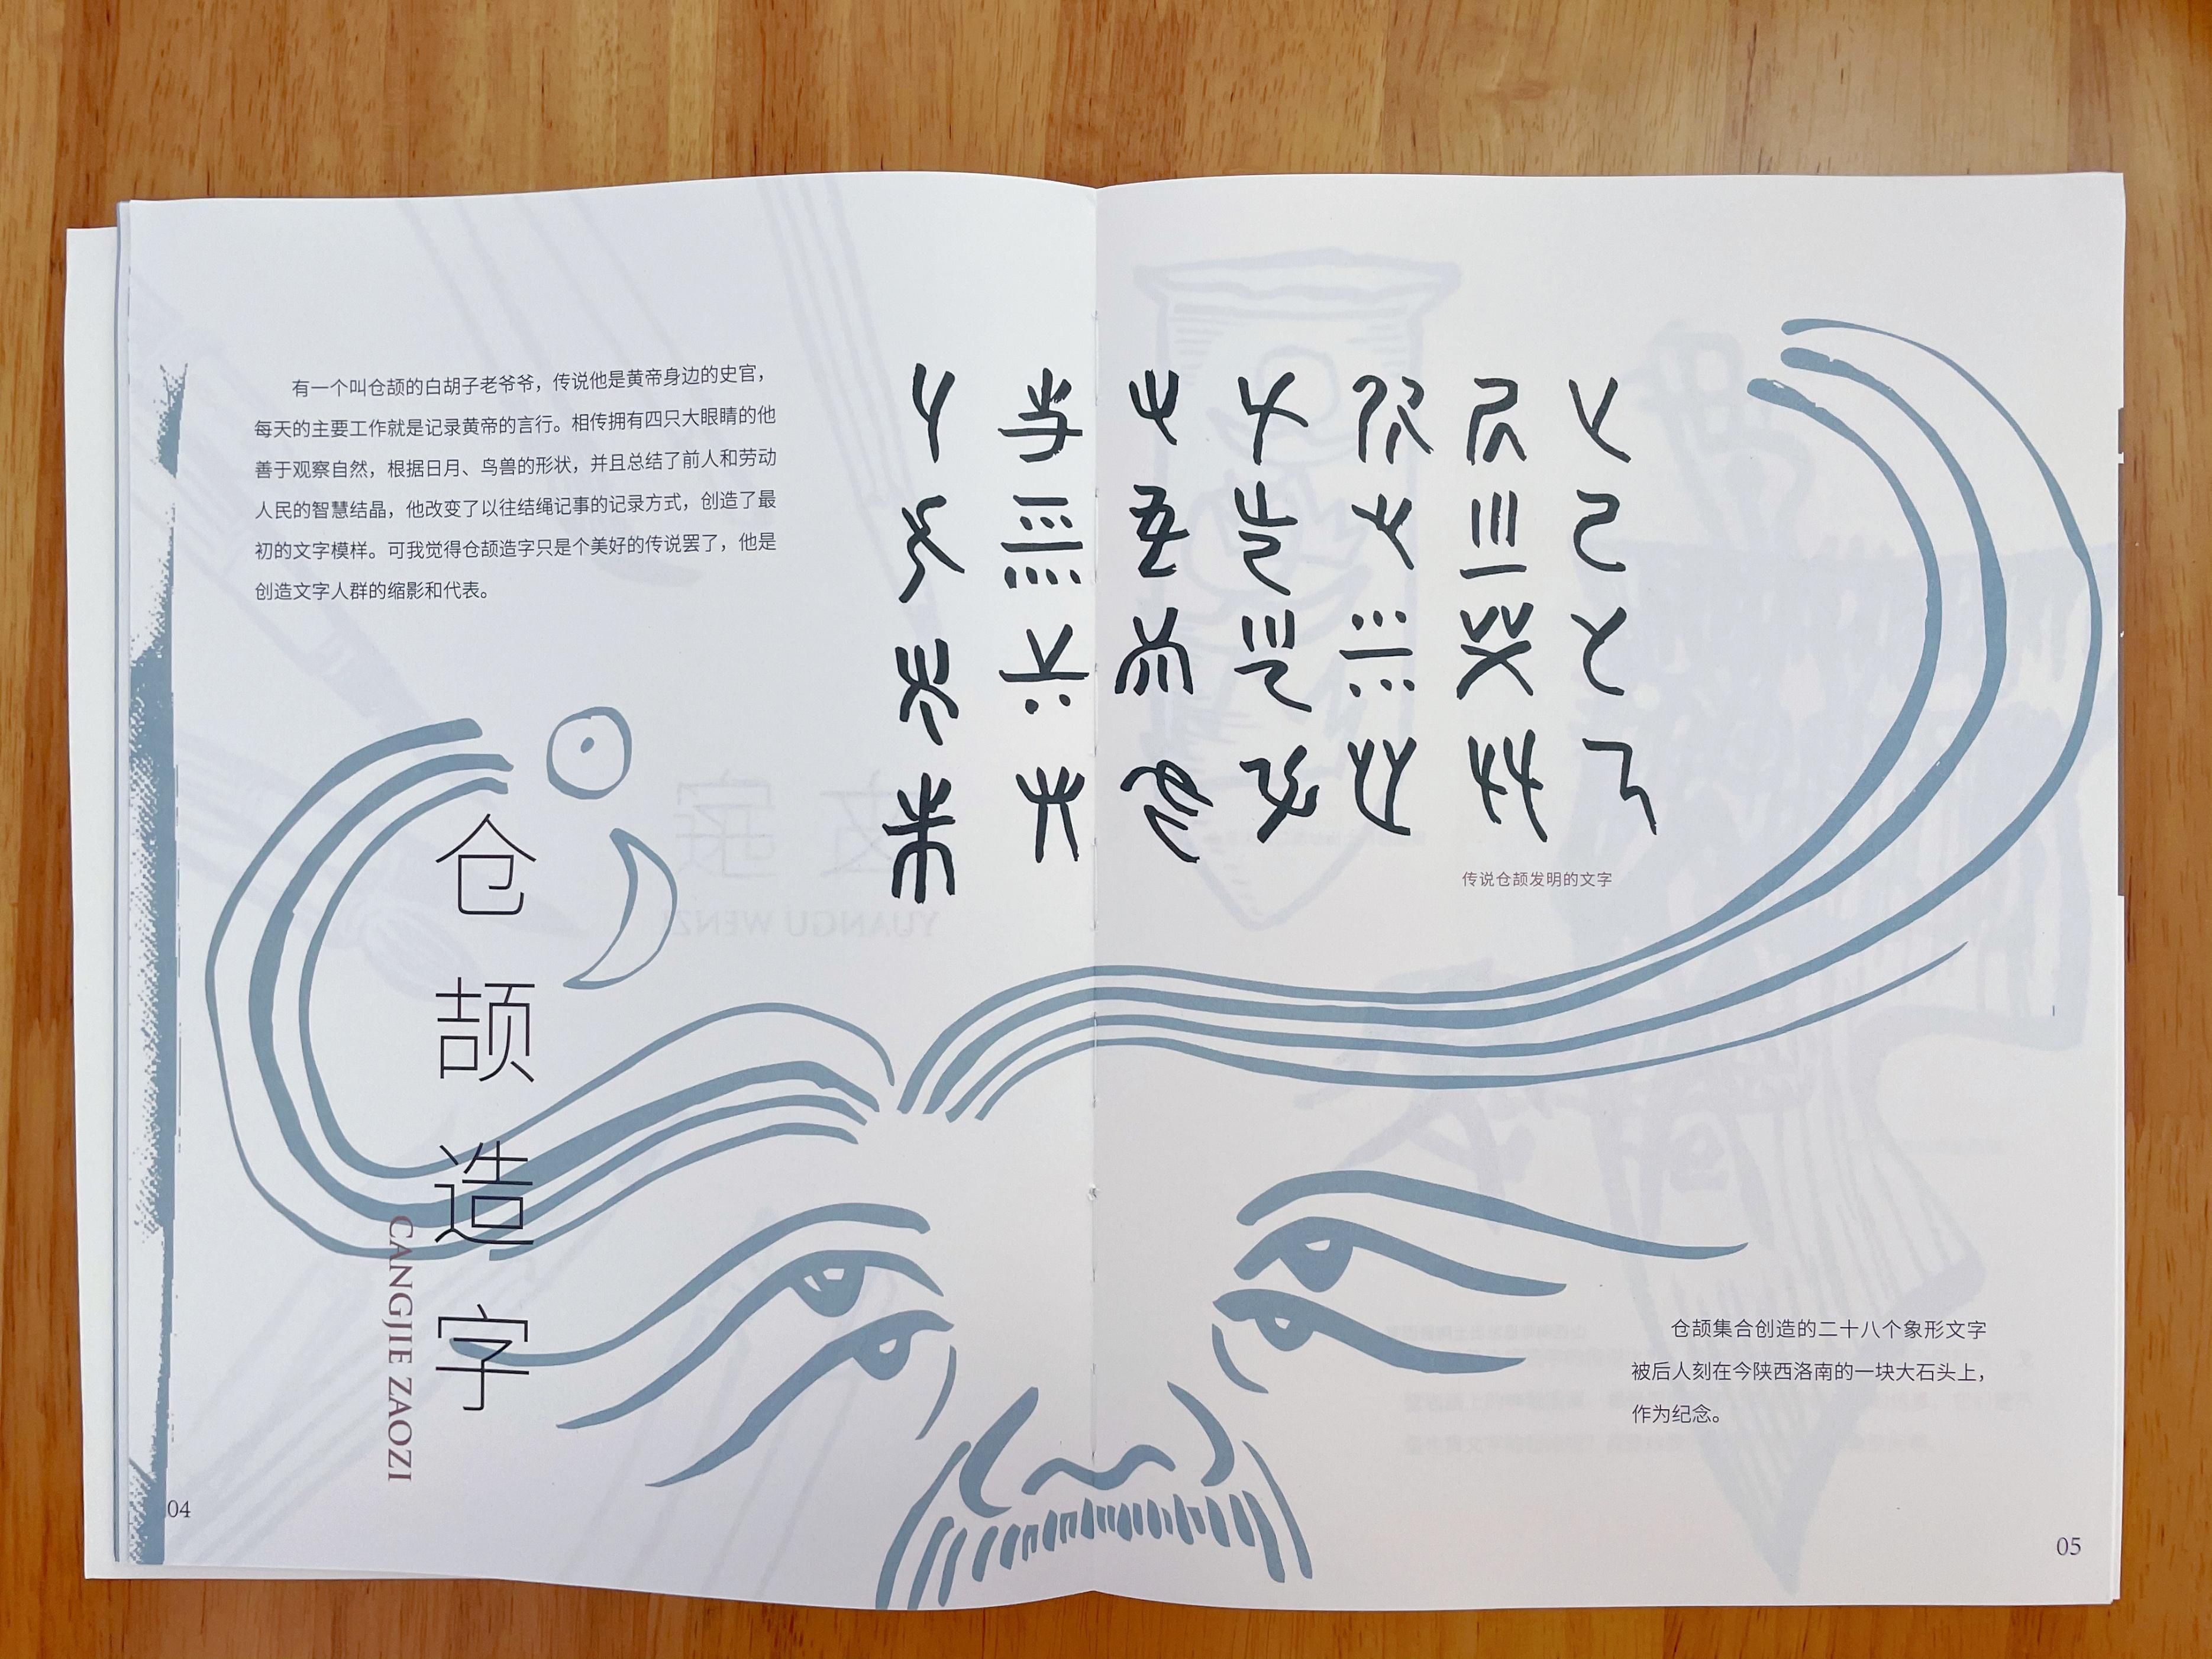 有一个叫仓颉的白胡子老爷爷，传说他是黄帝身边的史官，
每天的主要工作就是记录黄帝的言行。相传拥有四只大眼睛的他
善于观察自然，根据日月、鸟兽的形状，并且总结了前人和劳动
人民的智慧结晶，他改变了以往结绳记事的记录方式，创造了最
初的文字模样。可我觉得仓颉造字只是个美好的传说罢了，他是
创造文字人群的缩影和代表。
仓颉造字
CANGJIE ZAOZI
04
传说仓颉发明的文字
仓颉集合创造的二十八个象形文字
被后人刻在今陕西洛南的一块大石头上，
作为纪念。
05